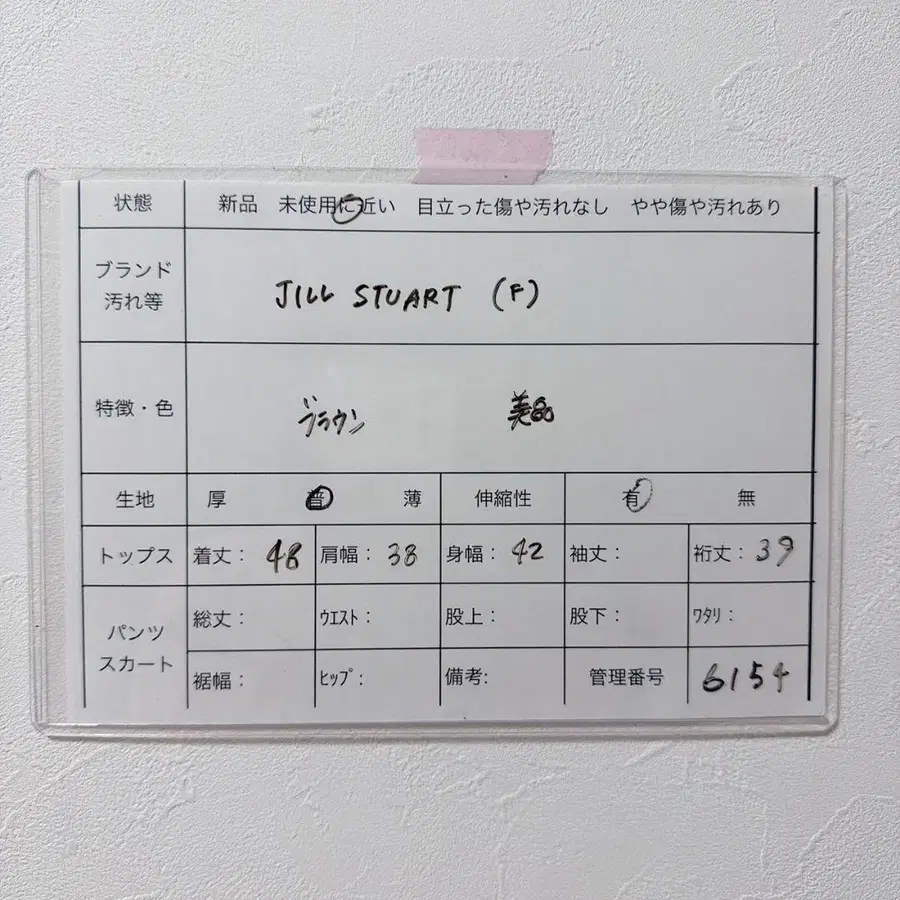 状態 新品 未使用に近い 目立った傷や汚れなし やや傷や汚れあり
ブランド
汚れ等
JILL STUART (F)
特徴・色 ブラウン 美品
生地 厚 普 薄 伸縮性 有 無
トップス 着丈: 48 肩幅: 38 身幅: 42 袖丈: 裄丈: 39
パンツ
スカート
総丈: ウエスト: 股上: 股下: ワタリ:
裾幅: ヒップ: 備考: 管理番号 6154